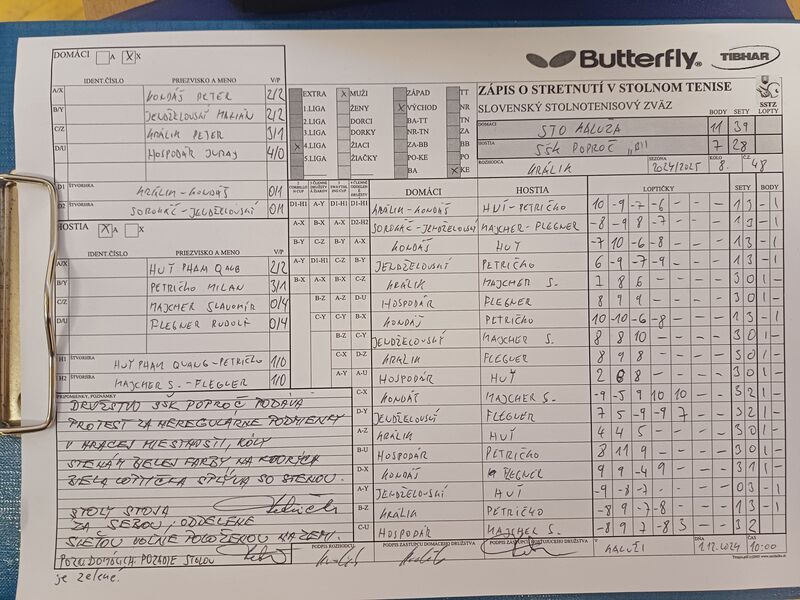 DOMÁCI A X X
Butterfly TIBHAR
IDENT.ČÍSLO PRIEZVISKO A MENO V/P
A/X KONDÁŠ PETER 2/2
B/Y JENDŽELOVSKÝ MARIÁN 2/2
C/Z KRÁLIK PETER 3/1
D/U HOSPODÁR JURAJ 4/0
D1 ŠTVORHRA KRÁLIK-KONDÁŠ 0/1
D2 ŠTVORHRA SOROKÁČ-JENDŽELOVSKÝ 0/1
HOSTIA X A X
IDENT.ČÍSLO PRIEZVISKO A MENO V/P
A/X HUŤ PHAM QANG 2/2
B/Y PETRIČKO MILAN 3/1
C/Z MAJCHER SLAVOMÍR 0/4
D/U FLEGNER RUDOLF 0/4
H1 ŠTVORHRA HUŤ PHAM QUANG-PETRIČKO 1/0
H2 ŠTVORHRA MAJCHER S. - FLEGNER 1/0
PRIPOMIENKY, POZNÁMKY
DRUŽSTVO SŠK POPROČ PODÁVA
PROTEST ZA NEREGULÁRNE PODMIENKY
V HRACEJ MIESTNOSTI, KÔLY
STENÁM BIELEJ FARBY NA KTORÝCH
BIELA LOPTIČKA SPLÝVA SO STENOU.
STOLY STOJA
ZA SEBOU, ODDELENÉ
SIEŤOU VOĽNE POLOŽENOU NA ZEMI.
POZN. DOMÁCICH: POZADIE STOLOV
je zelené.
EXTRA X MUŽI ZÁPAD TT
1.LIGA ŽENY X VÝCHOD NR
2.LIGA DORCI BA-TT TN
3.LIGA DORKY NR-TN ZA
X 4.LIGA ŽIACI ZA-BB BB
5.LIGA ŽIAČKY PO-KE PO
BA X KE
ZÁPIS O STRETNUTÍ V STOLNOM TENISE
SLOVENSKÝ STOLNOTENISOVÝ ZVÄZ
BODY SETY SSTZ LOPTY
DOMÁCI STO KALUŽA 11 39
HOSTIA SŠK POPROČ „B" 7 28
ROZHODCA KRÁLIK SEZÓNA 2024/2025 KOLO 8. Č.Z. 48
DOMÁCI HOSTIA LOPTIČKY SETY BODY
D1-H1 A-Y D1-H1 D1-H1 KRÁLIK-KONDÁŠ HUŤ-PETRIČKO 10 -9 -7 -6 - - - 1 3 - 1
A-X B-X A-X D2-H2 SOROKÁČ-JENDŽELOVSKÝ MAJCHER-FLEGNER -8 -9 8 -7 - - - 1 3 - 1
B-Y C-Z B-Y A-X KONDÁŠ HUŤ -7 10 -6 -8 - - - 1 3 - 1
A-Y D1-H1 C-Z B-Y JENDŽELOVSKÝ PETRIČKO 6 -9 -7 -9 - - - 1 3 - 1
B-X A-X B-X C-Z KRÁLIK MAJCHER S. 7 8 6 - - - - 3 0 1 -
B-Z A-Z D-U HOSPODÁR FLEGNER 8 9 9 - - - - 3 0 1 -
C-Y Y-X B-X KONDÁŠ PETRIČKO 10 -10 -6 -8 - - - 1 3 - 1
B-Z C-Y JENDŽELOVSKÝ MAJCHER S. 8 8 10 - - - - 3 0 1 -
C-X D-Z KRÁLIK FLEGNER 8 9 8 - - - - 3 0 1 -
A-Y A-U HOSPODÁR HUŤ 2 6 8 - - - - 3 0 1 -
C-X KONDÁŠ MAJCHER S. -9 -5 9 10 10 - - 3 2 1 -
D-Y JENDŽELOVSKÝ FLEGNER 7 5 -9 -9 7 - - 3 2 1 -
A-Z KRÁLIK HUŤ 4 4 5 - - - - 3 0 1 -
B-U HOSPODÁR PETRIČKO 8 11 9 - - - - 3 0 1 -
D-X KONDÁŠ FLEGNER 9 9 -4 9 - - - 3 1 1 -
A-Y JENDŽELOVSKÝ HUŤ -9 -8 -7 - - - - 0 3 - 1
B-Z KRÁLIK PETRIČKO -8 9 -7 -8 - - - 1 3 - 1
C-U HOSPODÁR MAJCHER S. -8 9 7 -8 3 - - 3 2
PODPIS ROZHODCU PODPIS ZÁSTUPCU DOMÁCEHO DRUŽSTVA PODPIS ZÁSTUPCU HOSŤUJÚCEHO DRUŽSTVA V KALUŽI DŇA 1.12.2024 ČAS 10:00